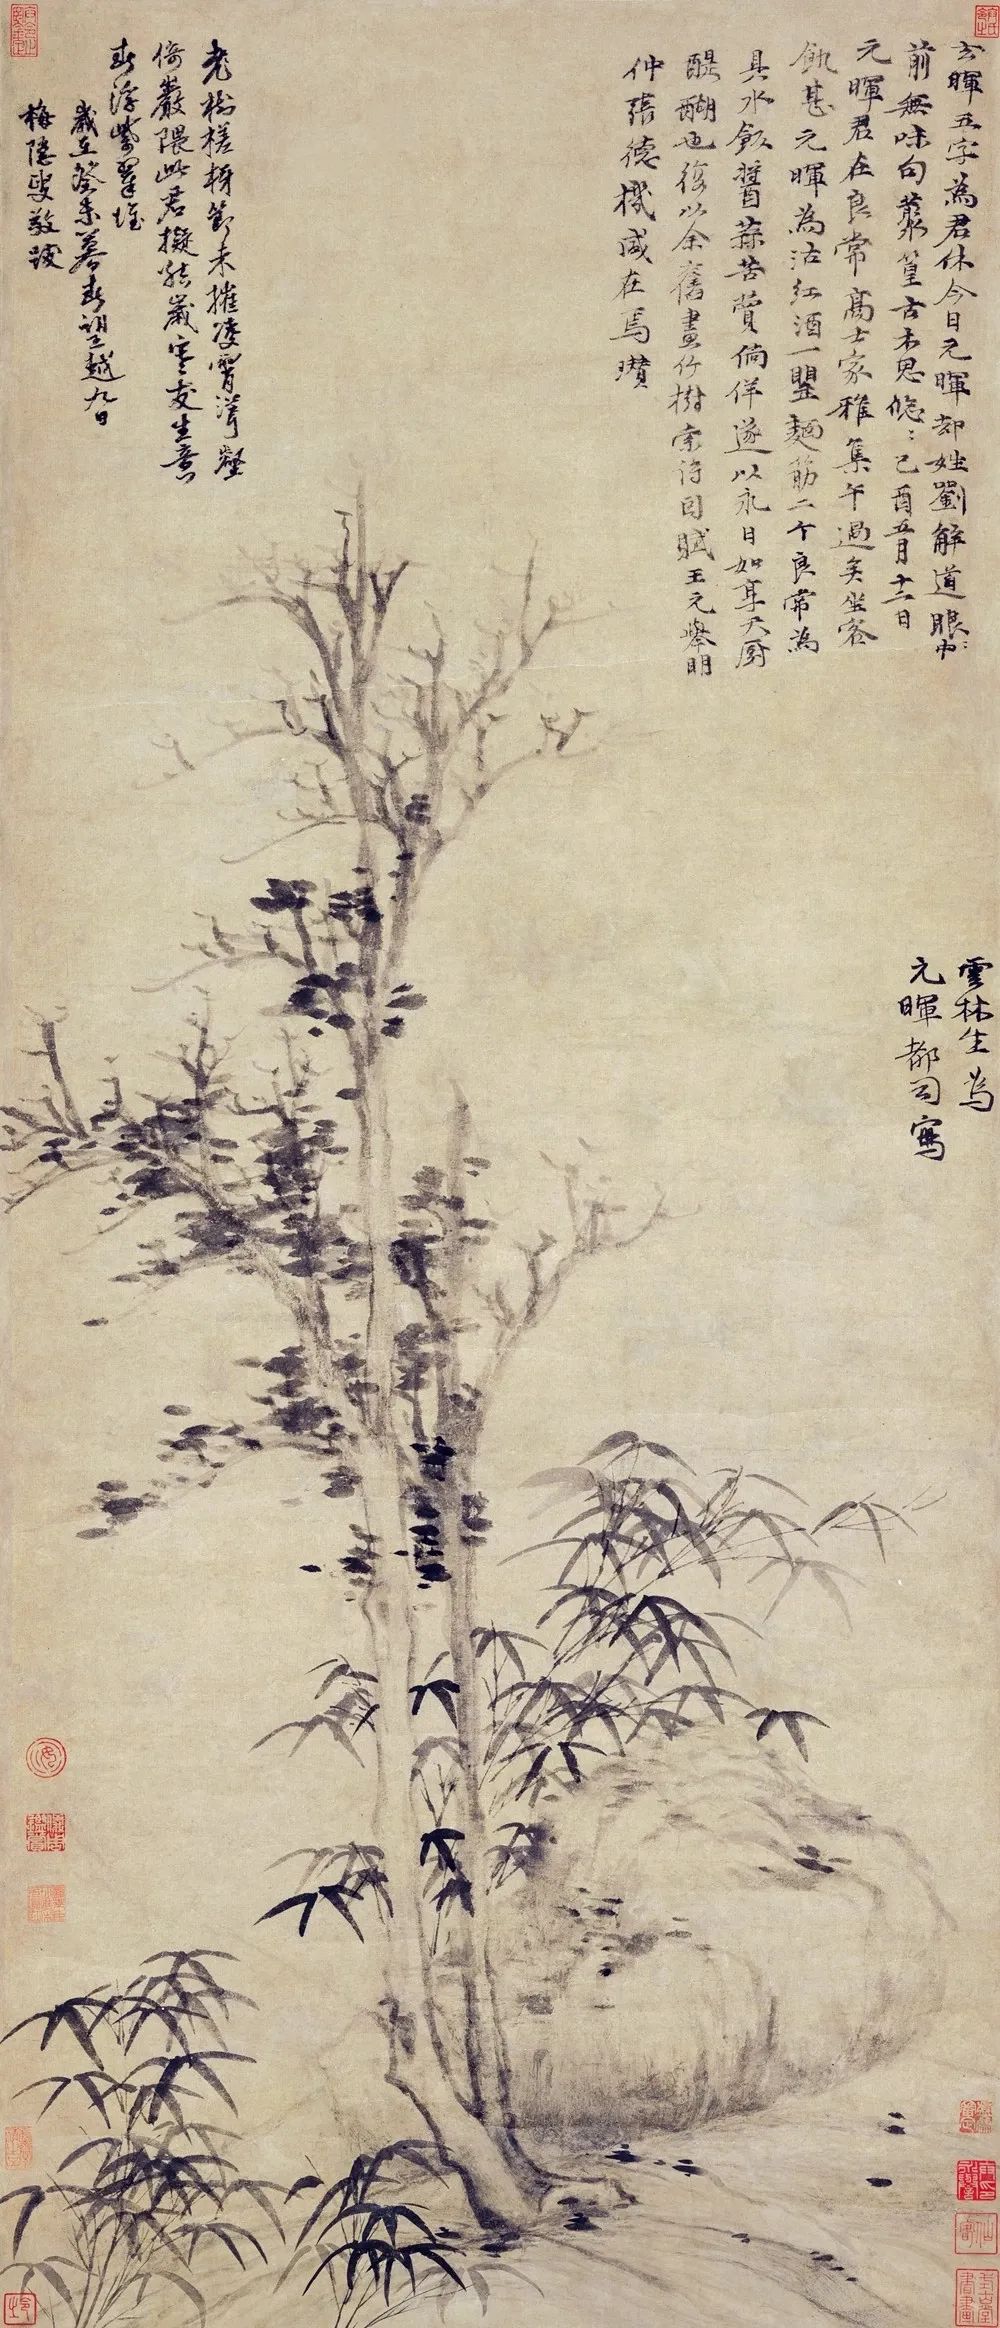 玄暉五字為君休今日元暉却姓劉解道眼
前無味句叢篁古木思悠〻己酉五月十二日
元暉君在良常高士家雅集午過矣坐客
飢甚元暉為沽紅酒一罌麵筋二个良常為
具水飯醬蒜苦蕒徜徉遂以永日如享天廚
醍醐也復以余舊畫竹樹索詩因賦王元舉明
仲張德機咸在焉瓚
雲林生為
元暉都司寫
老樹槎枒節未摧凌霄聳壑
倚巖隈此君擬結歲寒友生意
春深紫翠堆
歲在癸未暮春望越九日
梅隱叟敬跋